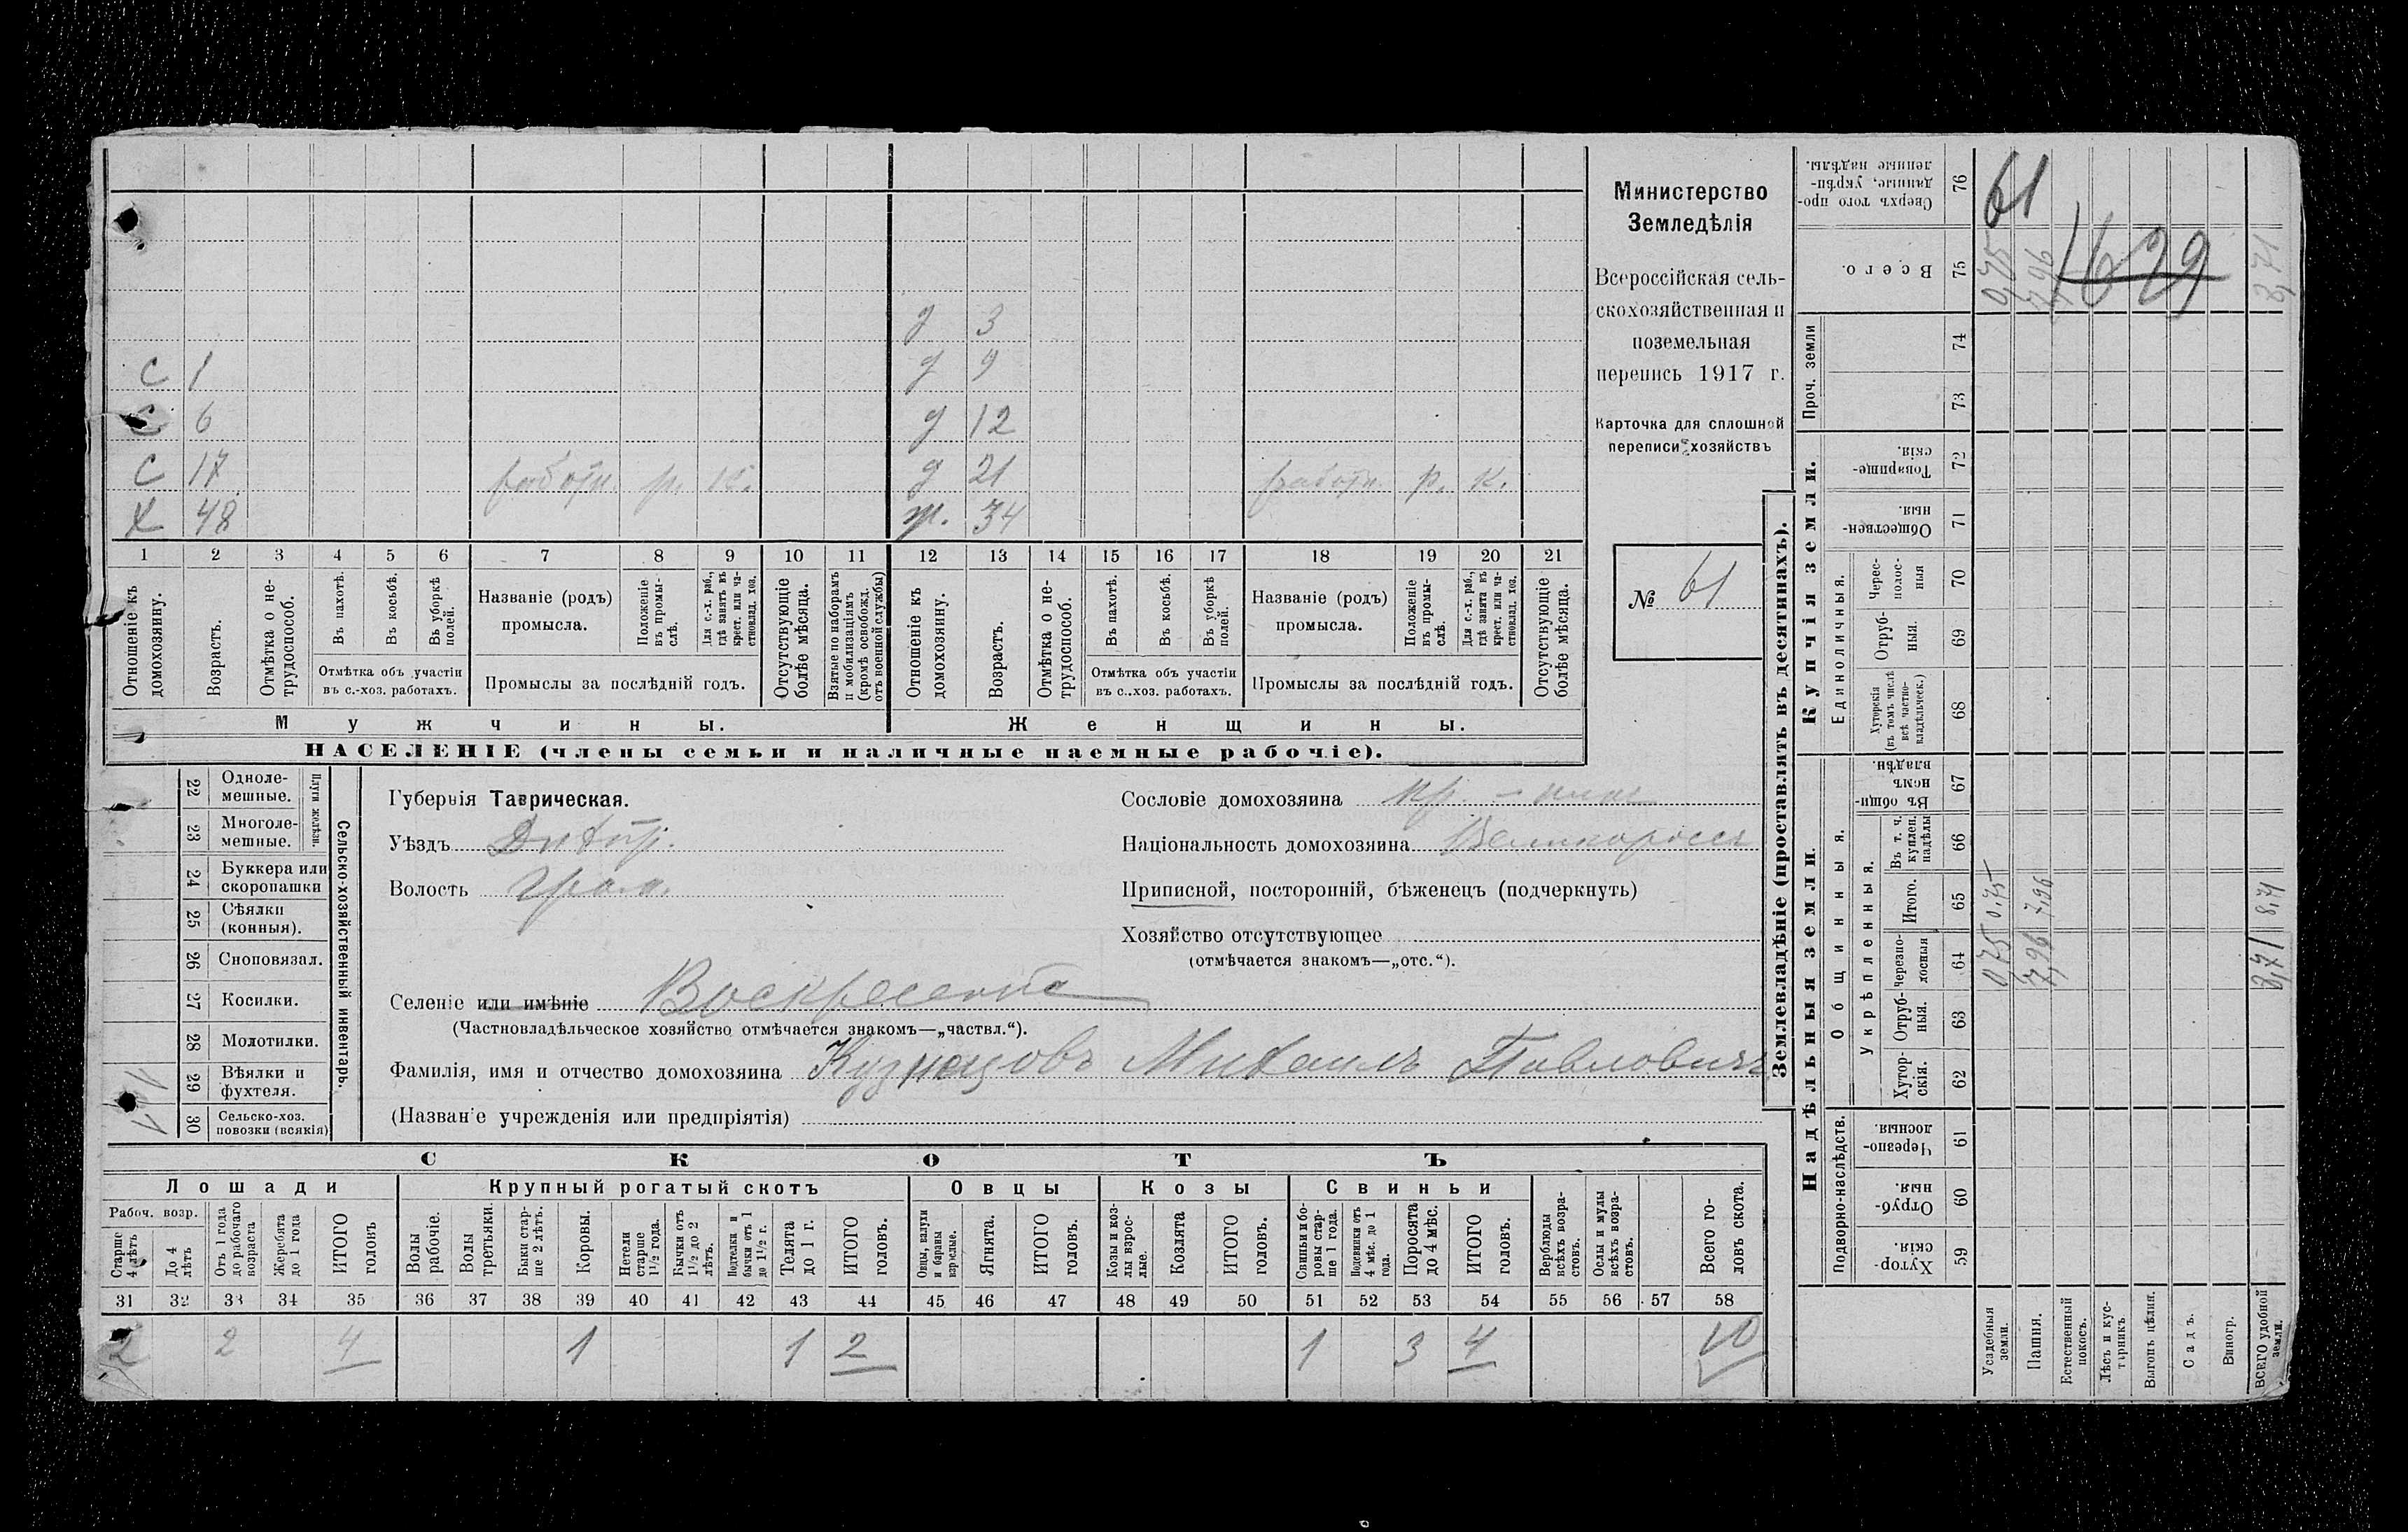 Министерство
Земледѣлія
Всероссійская сель-
скохозяйственная и
поземельная
перепись 1917 г.
Карточка для сплошной
переписи хозяйствъ
№ 61
д 3
С 1 д 9
С 6 д 12
С 17 работн. р. к. д 21 работн. р. к.
Х 48 ж. 34
1 2 3 4 5 6 7 8 9 10 11 12 13 14 15 16 17 18 19 20 21
Отношеніе къ домохозяину.
Возрастъ.
Отмѣтка о не-трудоспособ.
Въ пахотѣ.
Въ косьбѣ.
Въ уборкѣ полей.
Отмѣтка объ участіи
въ с.-хоз. работахъ.
Названіе (родъ)
промысла.
Положеніе въ промы-слѣ.
Для с.-х. раб., гдѣ занятъ въ крест. или ча-стновлад. хоз.
Промыслы за послѣдній годъ.
Отсутствующіе болѣе мѣсяца.
Взятые по наборамъ и мобилизаціямъ (кромѣ освобожд. отъ военной службы)
Отношеніе къ домохозяину.
Возрастъ.
Отмѣтка о не-трудоспособ.
Въ пахотѣ.
Въ косьбѣ.
Въ уборкѣ полей.
Отмѣтка объ участіи
въ с..хоз. работахъ.
Названіе (родъ)
промысла.
Положеніе въ промы-слѣ.
Для с.-х. раб., гдѣ занята въ крест. или ча-стновлад. хоз.
Промыслы за послѣдній годъ.
Отсутствующіе болѣе мѣсяца.
Мужчины. Женщины.
НАСЕЛЕНІЕ (члены семьи и наличные наемные рабочіе).
Сельско-хозяйственный инвентарь.
Плуги желѣзн.
22 Одноле-мешные.
23 Многоле-мешные.
24 Буккера или скоропашки
25 Сѣялки (конныя).
26 Сноповязал.
27 Косилки.
28 Молотилки.
29 Вѣялки и фухтеля.
30 Сельско-хоз. повозки (всякія)
Губернія Таврическая.
Уѣздъ Днѣпр.
Волость
Сословіе домохозяина кр.
Національность домохозяина Великороссъ
Приписной, посторонній, бѣженецъ (подчеркнуть)
Хозяйство отсутствующее
(отмѣчается знакомъ—„отс.“).
Селеніе или имѣніе Воскресенка
(Частновладѣльческое хозяйство отмѣчается знакомъ—„частвл.“).
Фамилія, имя и отчество домохозяина Кузнецовъ Михаилъ Павловичъ
(Названіе учрежденія или предпріятія)
СКОТЪ
Лошади Крупный рогатый скотъ Овцы Козы Свиньи
Рабоч. возр.
Старше 4 лѣтъ
До 4 лѣтъ
Отъ 1 года до рабочаго возраста
Жеребята до 1 года
ИТОГО головъ
Волы рабочіе.
Волы третьяки.
Быки стар-ше 2 лѣтъ.
Коровы.
Нетели старше 1½ года.
Бычки отъ 1½ до 2 лѣтъ.
Подтелки и бычки отъ 1 до 1½ г.
Телята до 1 г.
ИТОГО головъ.
Овцы, валухи и бараны взрослые.
Ягнята.
ИТОГО головъ.
Козы и коз-лы взрос-лые.
Козлята
ИТОГО головъ.
Свиньи и бо-ровы стар-ше 1 года.
Подсвинки отъ 4 мѣс. до 1 года.
Поросята до 4 мѣс.
ИТОГО головъ.
Верблюды всѣхъ возра-стовъ.
Ослы и мулы всѣхъ возра-стовъ.
Всего го-ловъ скота.
31 32 33 34 35 36 37 38 39 40 41 42 43 44 45 46 47 48 49 50 51 52 53 54 55 56 57 58
2 2 4 1 1 2 1 3 4 10
Землевладѣніе (проставлять въ десятинахъ).
Надѣльныя земли. Купчія земли. Проч. земли
Подворно-наслѣдств.
Общинныя.
Укрѣпленныя.
Единоличныя.
59 Хутор-скія.
60 Отруб-ныя.
61 Черезпо-лосныя.
62 Хутор-скія.
63 Отруб-ныя.
64 Черезпо-лосныя
65 Итого.
66 Въ т. ч. куплен. надѣлы
67 Въ общи-номъ владѣн.
68 Хуторскія (въ томъ числѣ всѣ частно-владѣльческ.)
69 Отруб-ныя.
70 Черес-полос-ныя
71 Обществен-ныя.
72 Товарище-скія.
73
74
75 Всего.
76 Сверхъ того про-данные, укрѣп-ленные надѣлы.
Усадебныя земли. 0,75 0,75 0,75
Пашня. 7,96 7,96 7,96
Естественный покосъ.
Лѣсъ и кус-тарникъ
Выгонъ цѣлин.
Садъ.
Виногр.
ВСЕГО удобной земли. 8,71 8,71 8,71
61
1629